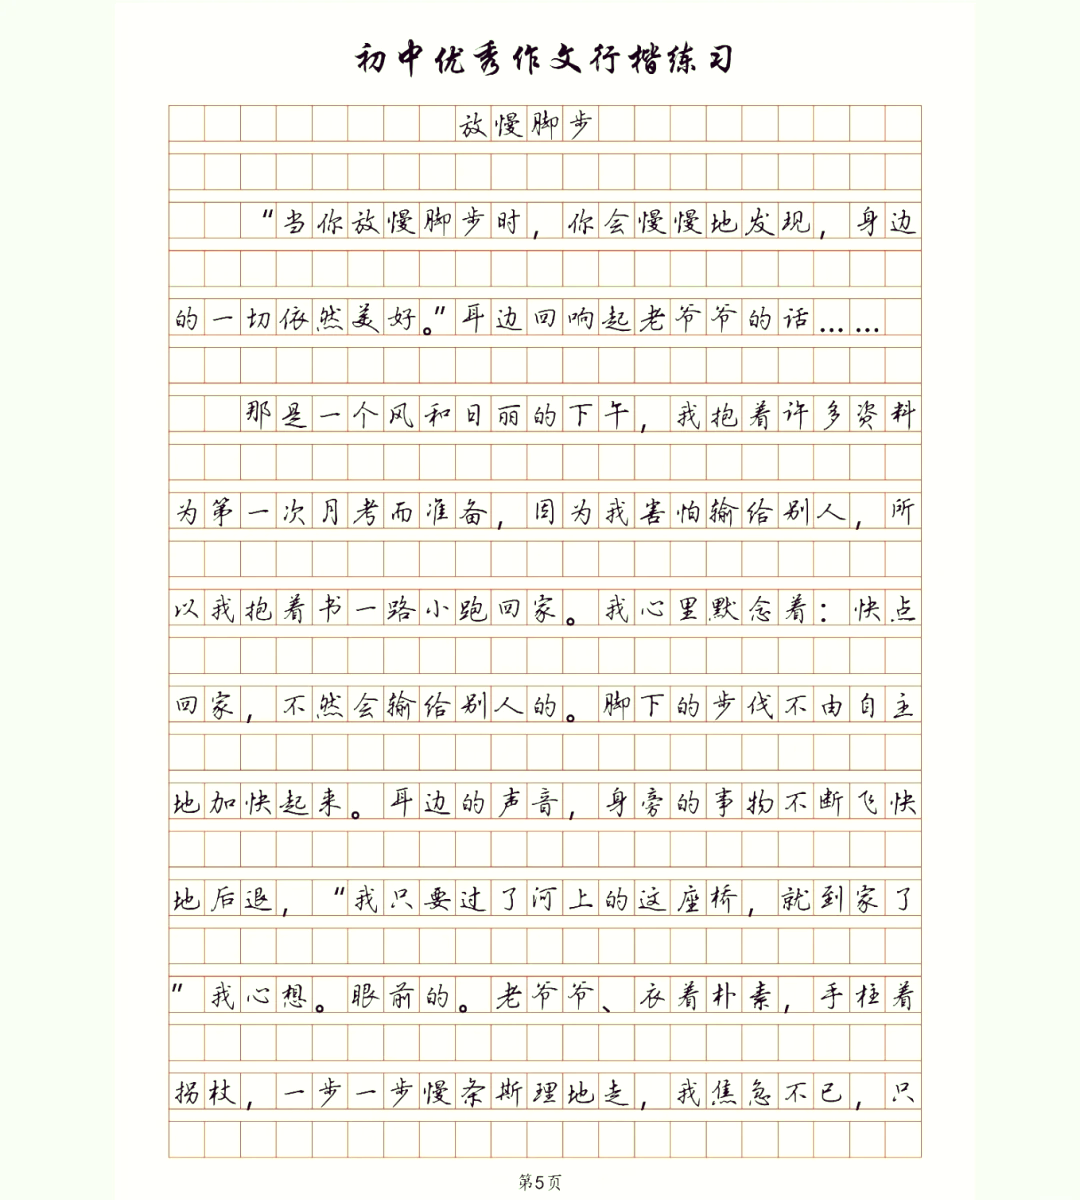 初中优秀作文行楷练习
放慢脚步
“当你放慢脚步时，你会慢慢地发现，身边
的一切依然美好。”耳边回响起老爷爷的话……
那是一个风和日丽的下午，我抱着许多资料
为第一次月考而准备，因为我害怕输给别人，所
以我抱着书一路小跑回家。我心里默念着：快点
回家，不然会输给别人的。脚下的步伐不由自主
地加快起来。耳边的声音，身旁的事物不断飞快
地后退，“我只要过了河上的这座桥，就到家了
”我心想。眼前的。老爷爷、衣着朴素，手柱着
拐杖，一步一步慢条斯理地走，我焦急不已，只
第5页